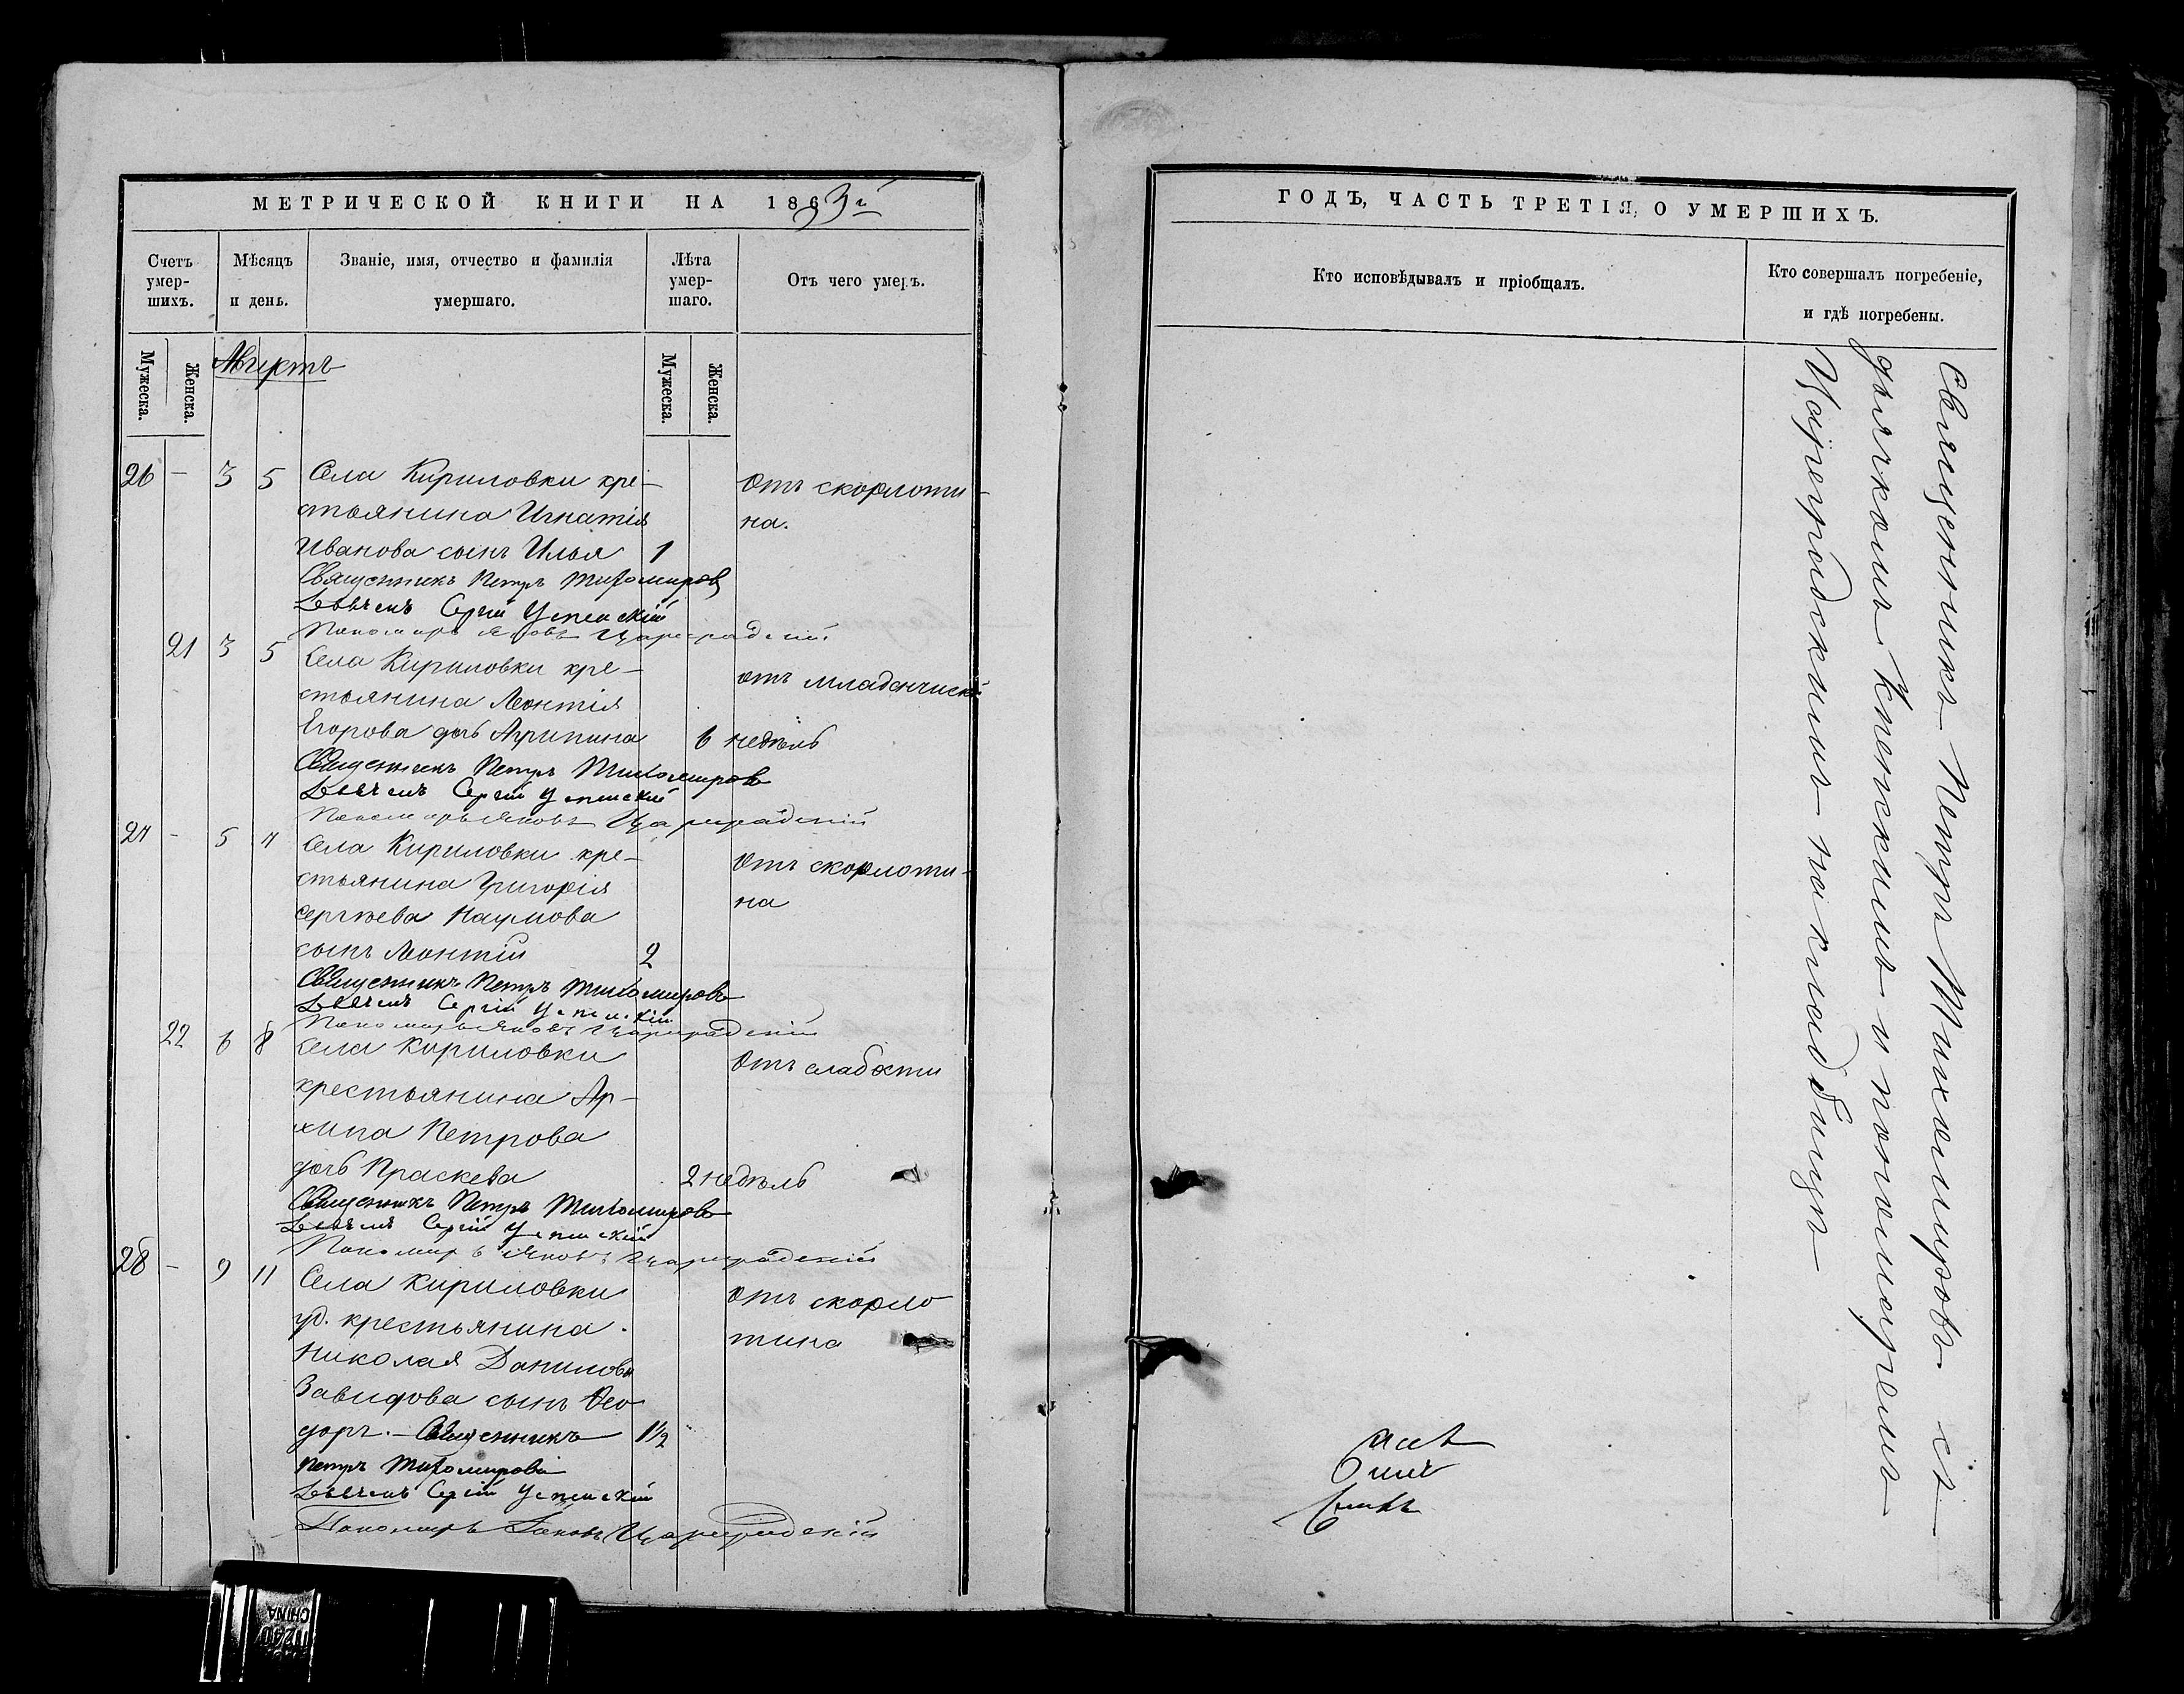 МЕТРИЧЕСКОЙ КНИГИ НА 1863й
Счетъ умер-шихъ.
Мѣсяцъ и день.
Званіе, имя, отчество и фамилія умершаго.
Лѣта умер-шаго.
Отъ чего умеръ.
Мужеска.
Женска.
Августъ
Мужеска.
Женска.
26 - 3 5 Села Кириловки кре- Отъ скорлоти-
стьянина Игнатія на.
Иванова сынъ Илья 1
Священникъ Петръ Тихомировъ
Дьячекъ Сергій Успенскій
Пономарь Яковъ Цареградскій
21 3 5 Села Кириловки кре- отъ младенческ
стьянина Леонтія
Егорова дочь Агрипина 6 недѣль
Священникъ Петръ Тихомировъ
Дьячекъ Сергій Успенскій
Пономарь Яковъ Цареградскій
27 - 5 7 Села Кириловки кре- Отъ скорлоти-
стьянина Григорія на
Сергѣева Наумова
сынъ Леонтій 2
Священникъ Петръ Тихомировъ
Дьячекъ Сергій Успенскій
Пономарь Яковъ Цареградскій
22 6 8 Села Кириловки Отъ слабости
крестьянина Ар-
хипа Петрова
дочь Праскева 2 недѣль
Священникъ Петръ Тихомировъ
Дьячекъ Сергій Успенскій
Пономарь Яковъ Цареградскій
28 - 9 11 Села Кириловки Отъ скорло
уд. крестьянина тина
Николая Данилова
Завидова сынъ Ѳео
доръ. - Священникъ 1½
Петръ Тихомировъ
Дьячекъ Сергій Успенскій
Пономарь Іаковъ Цареградскій
ГОДЪ, ЧАСТЬ ТРЕТІЯ, О УМЕРШИХЪ.
Кто исповѣдывалъ и пріобщалъ.
Кто совершалъ погребеніе,
и гдѣ погребены.
Священникъ Петръ Тихомировъ съ
дьячкомъ Успенскимъ и пономаремъ
Цареградскимъ на кладбищѣ